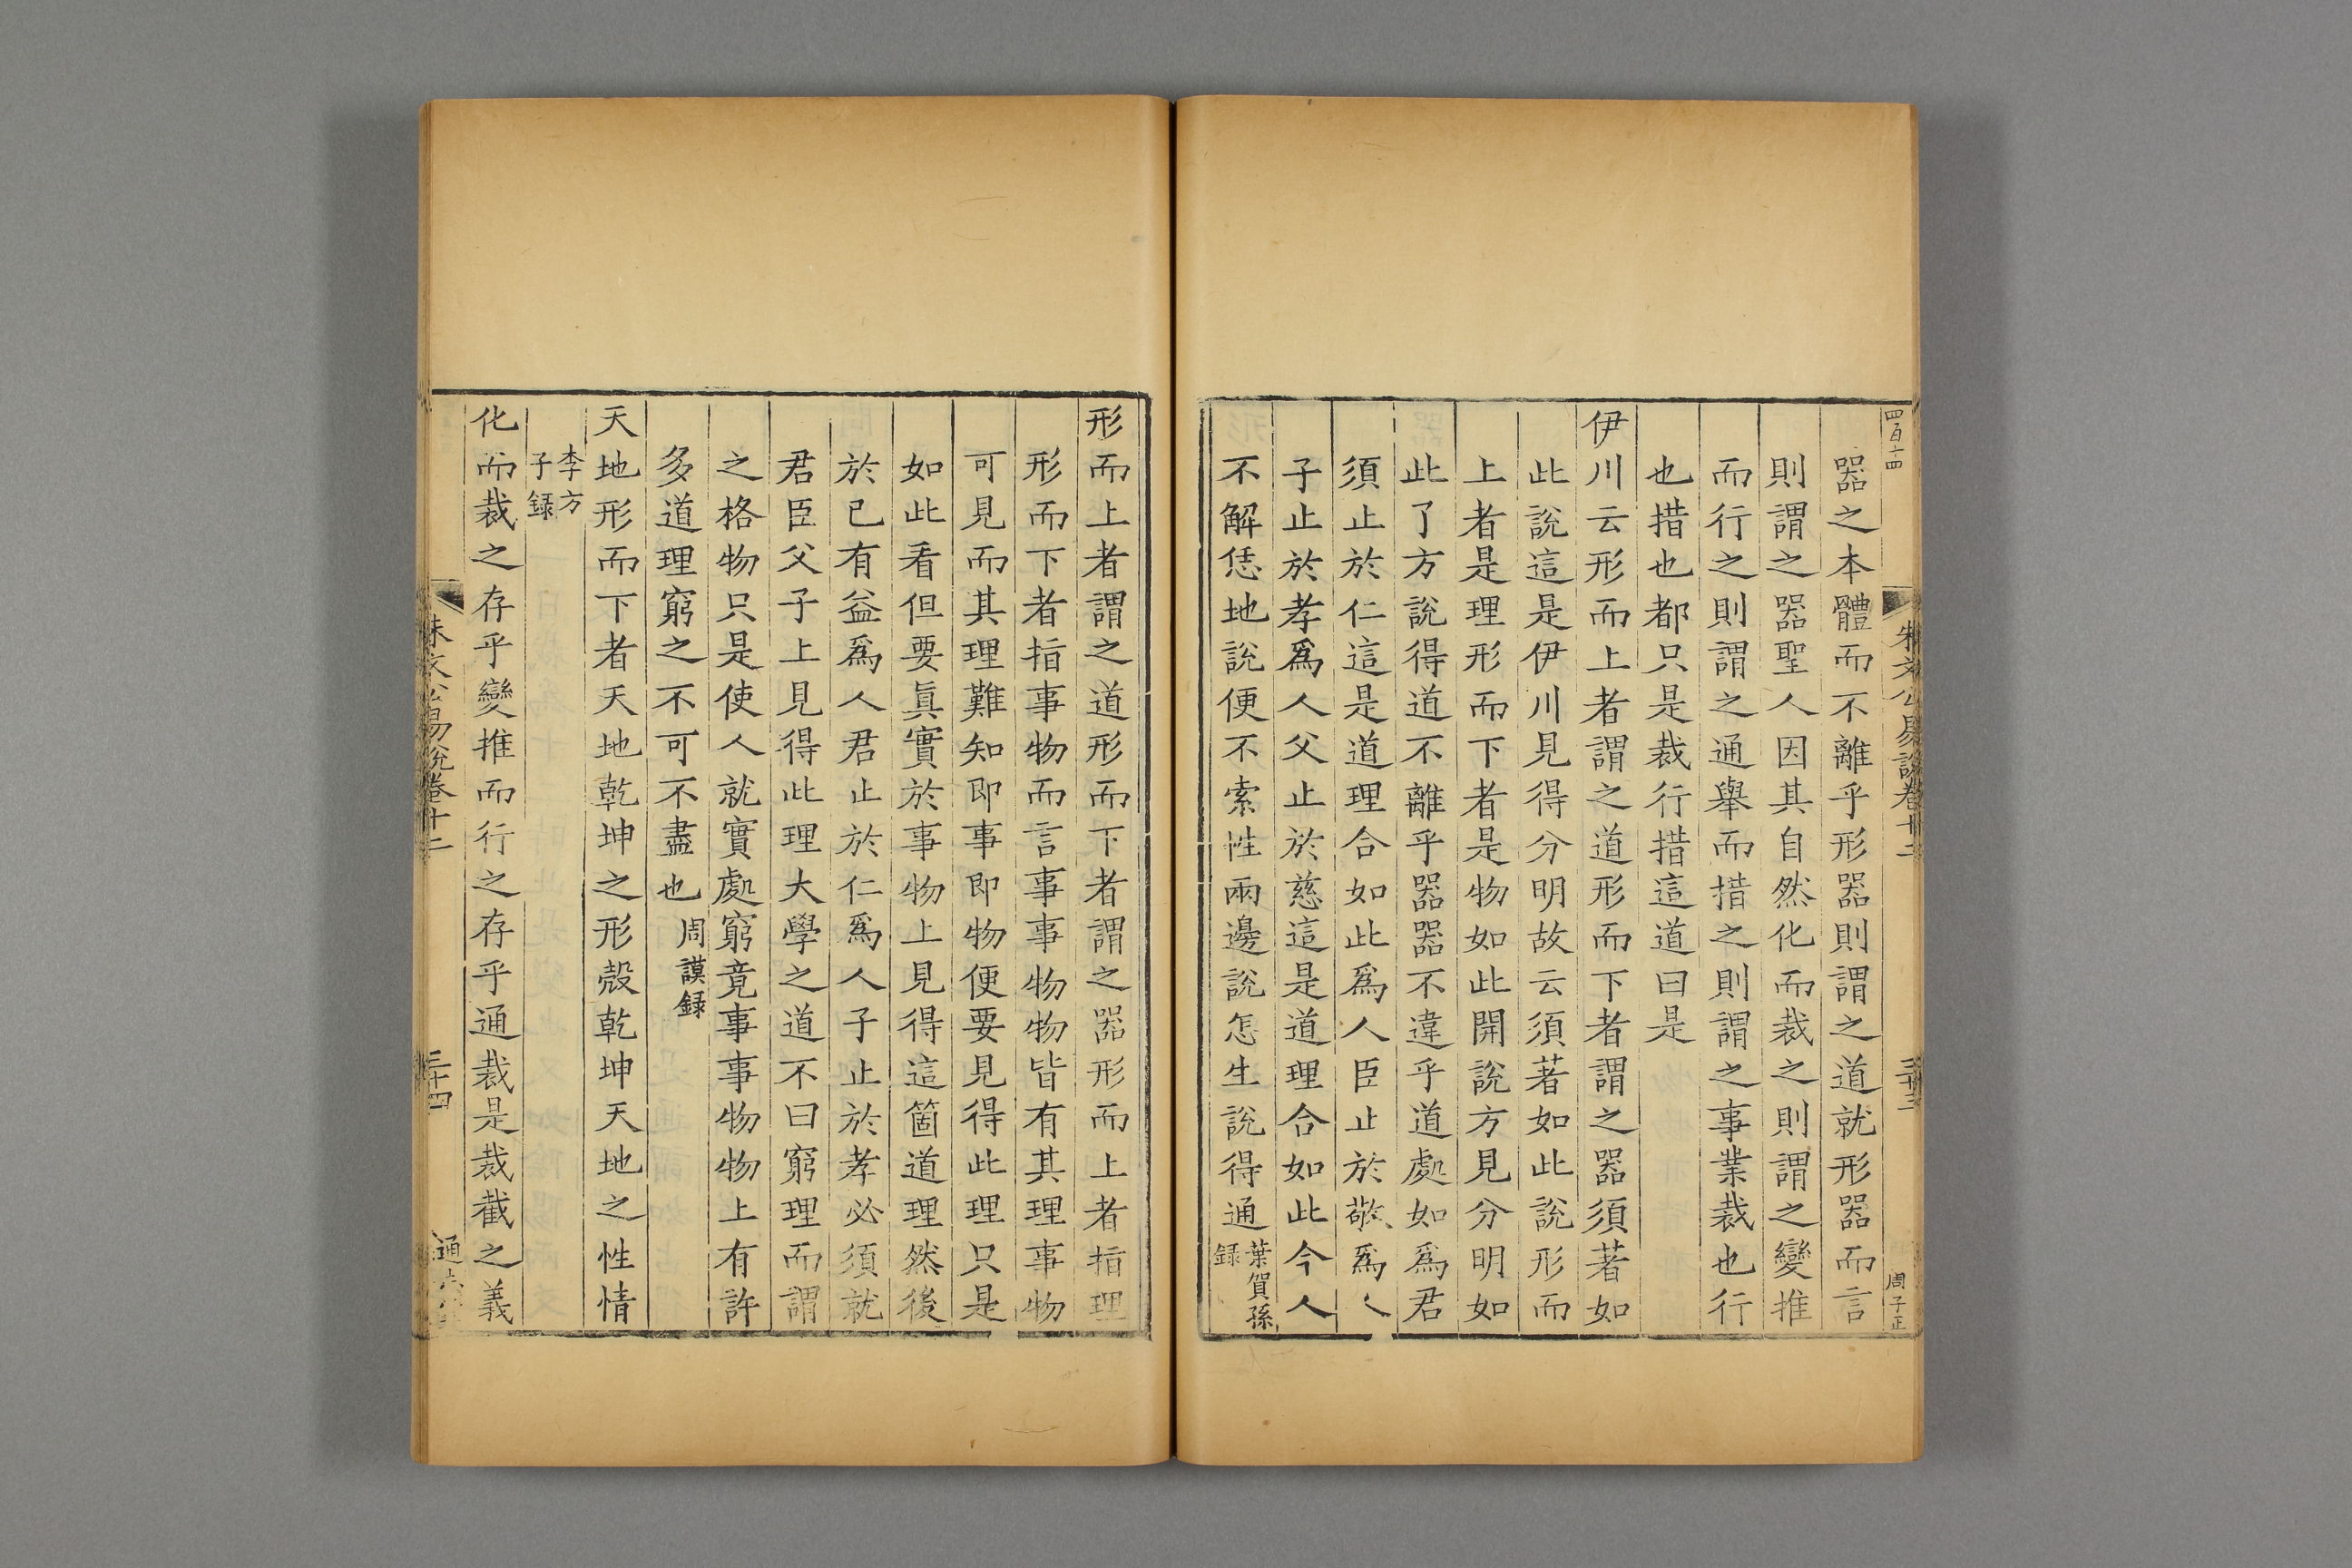 四百十四
朱文公易說卷十二
三十三
周子正
器之本體而不離乎形器則謂之道就形器而言
則謂之器聖人因其自然化而裁之則謂之變推
而行之則謂之通舉而措之則謂之事業裁也行
也措也都只是裁行措這道曰是
伊川云形而上者謂之道形而下者謂之器須著如
此說這是伊川見得分明故云須著如此說形而
上者是理形而下者是物如此開說方見分明如
此了方說得道不離乎器器不違乎道處如爲君
須止於仁這是道理合如此爲人臣止於敬爲人
子止於孝爲人父止於慈這是道理合如此今人
不解恁地說便不索性兩邊說怎生說得通葉賀孫
錄
形而上者謂之道形而下者謂之器形而上者指理
形而下者指事物而言事事物物皆有其理事物
可見而其理難知即事即物便要見得此理只是
如此看但要眞實於事物上見得這箇道理然後
於已有益爲人君止於仁爲人子止於孝必須就
君臣父子上見得此理大學之道不曰窮理而謂
之格物只是使人就實處窮竟事事物物上有許
多道理窮之不可不盡也周謨錄
天地形而下者天地乾坤之形殼乾坤天地之性情
李方
子錄
化而裁之存乎變推而行之存乎通裁是裁截之義
朱文公易說卷十二
三十四
通